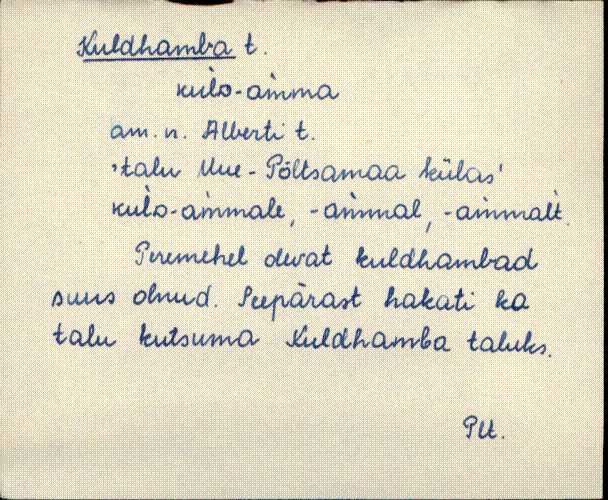 Kuldhamba t.
kùlᴅ-am̀ma
am. n. Alberti t.
'talu Uue-Põltsamaa külas'
kùlᴅ-am̀male, -am̀mal, -am̀malt.
Peremehel olevat kuldhambad
suus olnud. Seepärast hakati ka
talu kutsuma Kuldhamba taluks.
Plt.